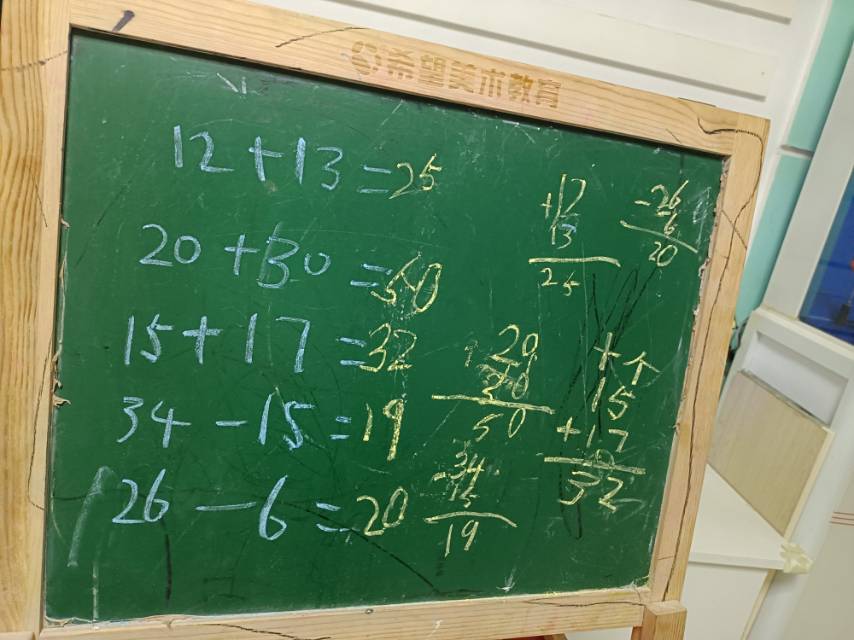 希望美术教育
12+13=25
20+30=50
15+17=32
34-15=19
26-6=20
+12
13
25
-26
6
20
20
30
50
+个
15
+17
32
-34
15
19